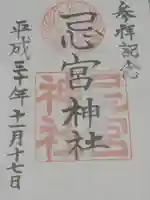 参拝記念
忌宮神社
平成三十年十一月十七日
忌宮
神社